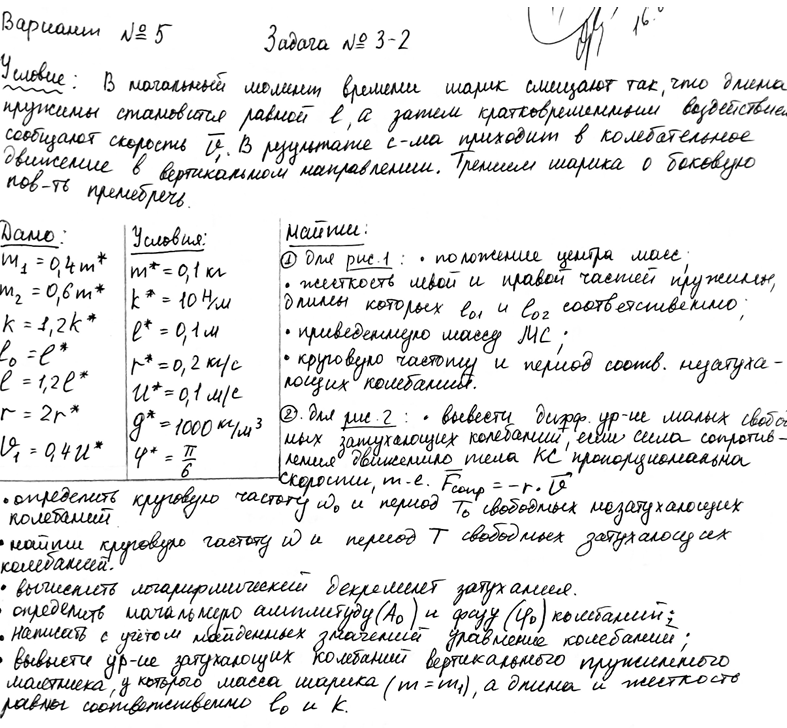 Вариант № 5
Задача № 3-2
16.
Условие: В начальный момент времени шарик смещают так, что длина
пружины становится равной l, а затем кратковременным воздействием
сообщают скорость v̄₁. В результате с-ма приходит в колебательное
движение в вертикальном направлении. Трением шарика о боковую
пов-ть пренебречь.
Дано:
m₁ = 0,4m*
m₂ = 0,6m*
k = 1,2k*
l₀ = l*
l = 1,2l*
r = 2r*
v₁ = 0,4u*
Условия:
m* = 0,1 кг
k* = 10 Н/м
l* = 0,1 м
r* = 0,2 кг/с
u* = 0,1 м/с
g* = 1000 кг/м³
φ* = π/6
Найти:
① Для рис. 1: • положение центра масс;
• жесткость левой и правой частей пружины,
длины которых l₀₁ и l₀₂ соответственно;
• приведенную массу МС;
• круговую частоту и период соотв. незатуха-
ющих колебаний.
② Для рис. 2: • вывести дифф. ур-ие малых свобод
ных затухающих колебаний, если сила сопротив-
ления движению тела КС пропорциональна
скорости, т.е. F̄сопр = -r · v̄
• определить круговую частоту ω₀ и период T₀ свободных незатухающих
колебаний
• найти круговую частоту ω и период T свободных затухающих
колебаний.
• вычислить логарифмический декремент затухания.
• определить начальную амплитуду (A₀) и фазу (φ₀) колебаний;
• написать с учётом найденных значений уравнение колебаний;
• вывести ур-ие затухающих колебаний вертикального пружинного
маятника, у которого масса шарика (m = m₁), а длина и жесткость
равны соответственно l₀ и k.